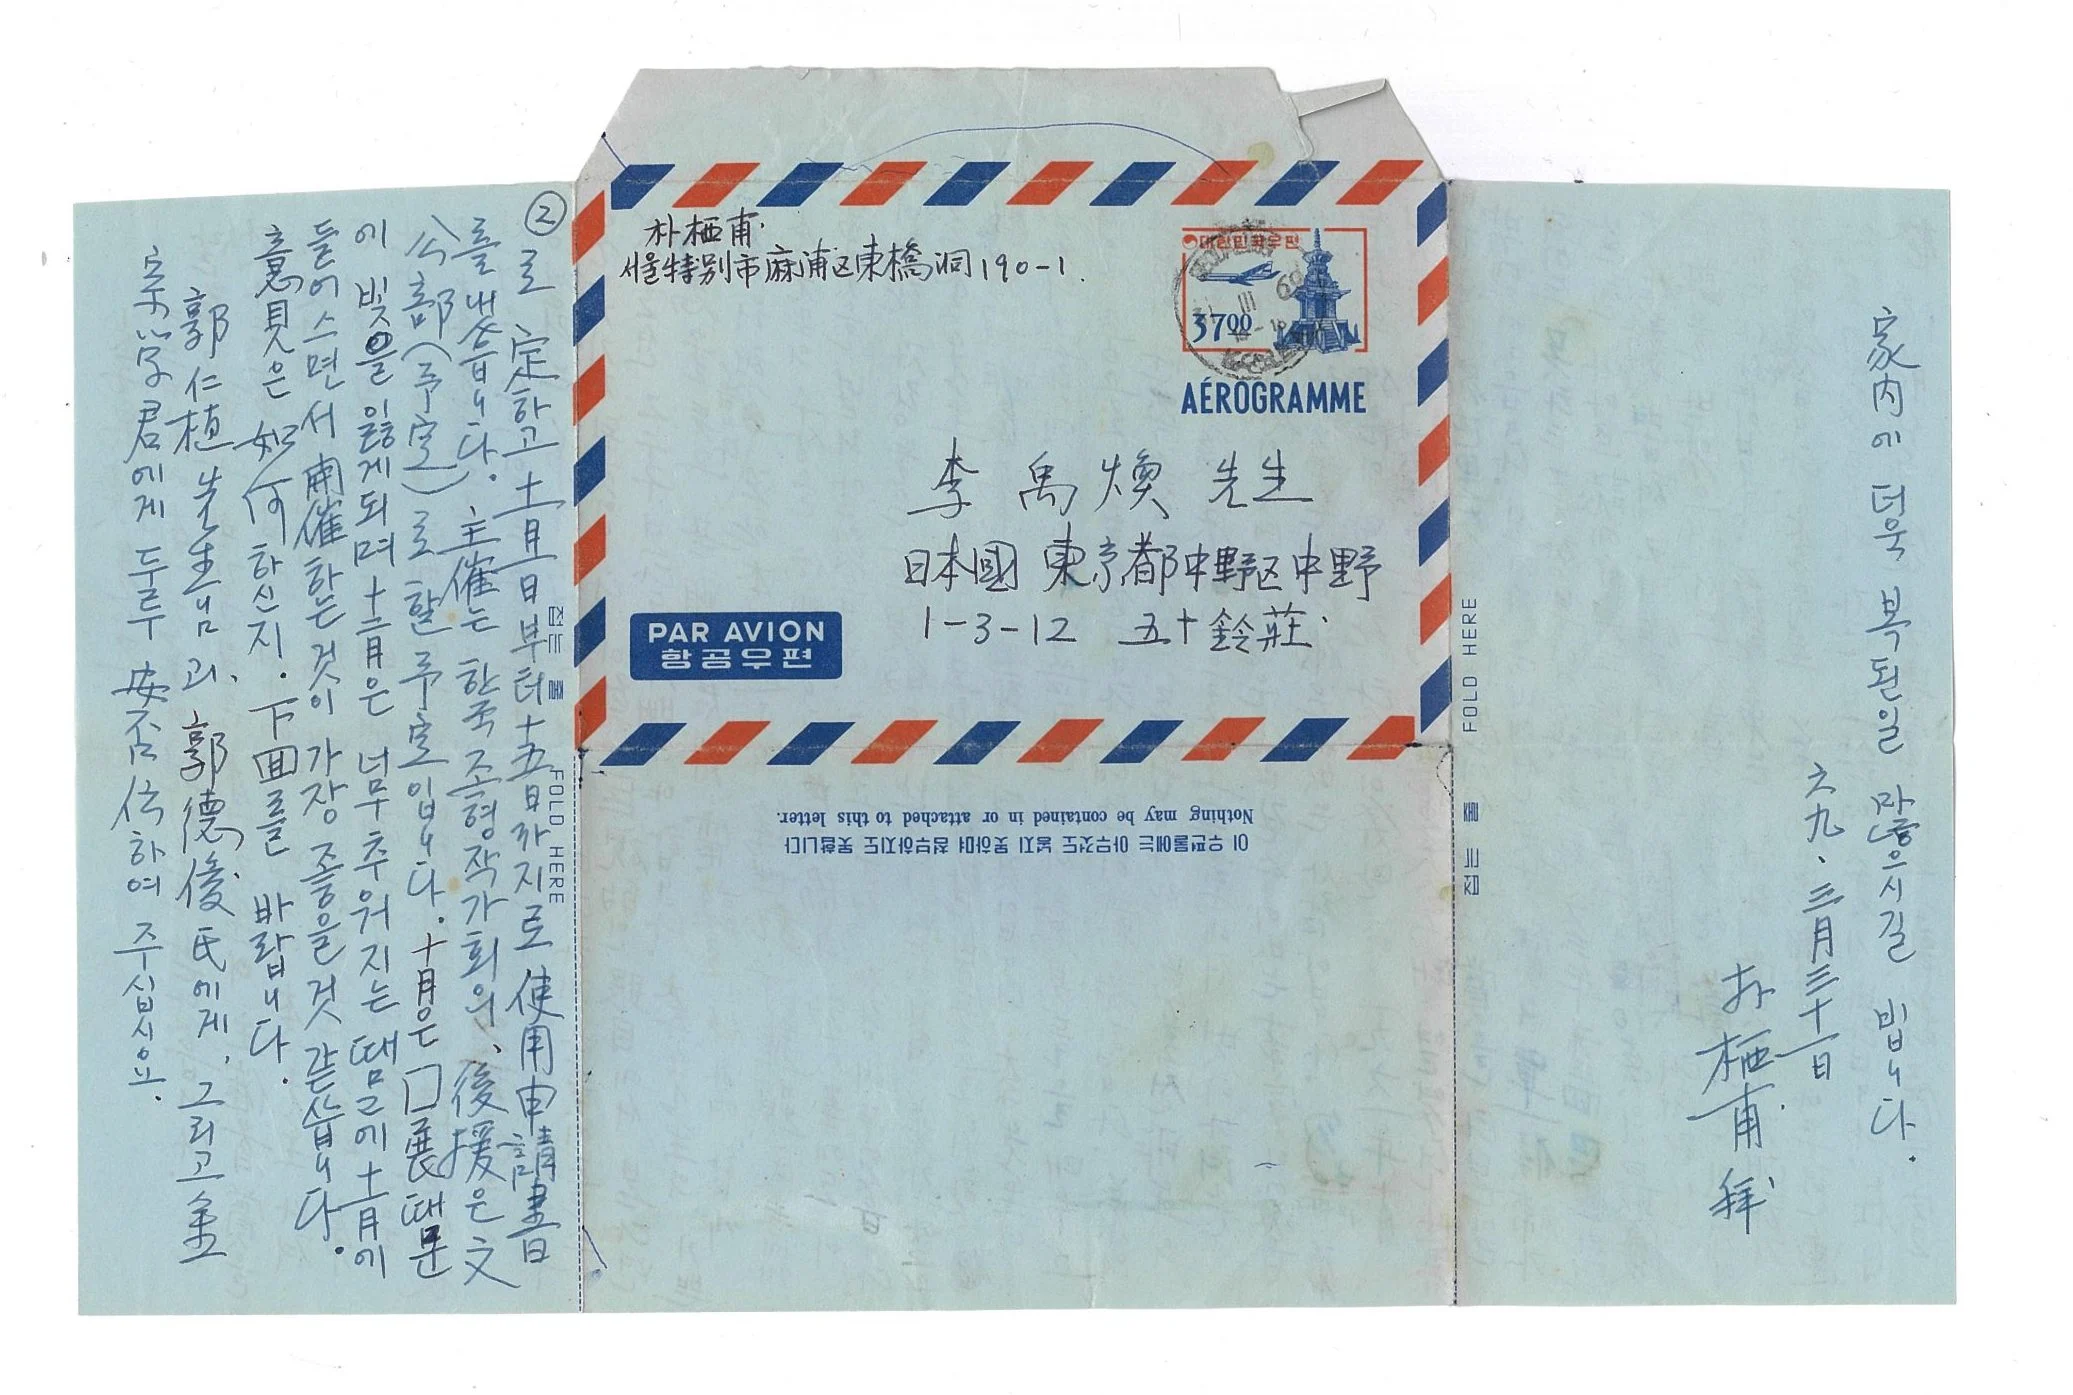 ②
로 定하고 十一月一日부터 十五日까지로 使用申請書
를 냈읍니다. 主催는 한국 조형작가회의, 後援은 文
公部(予定)로 할 予定입니다. 十月은 口展때문
에 빛을 잃게되며 十二月은 너무 추워지는 땜문에 十一月에
들어스면서 開催하는것이 가장 좋을것 같습니다.
意見은 如何하신지. 下回를 바랍니다.
郭仁植 先生님과, 郭德俊氏에게, 그리고 金
榮学君에게 두루 安否 伝하여 주십시요.
朴栖甫.
서울特别市麻浦区東橋洞190-1.
대한민국우편
SEOUL
31 III 69
3700
AÉROGRAMME
李禹煥 先生
日本國 東京都中野区中野
1-3-12 五十鈴莊.
PAR AVION
항공우편
접는 줄 FOLD HERE
FOLD HERE 접는 줄
이 우편물에는 아무것도 넣지 못하며 첨부하지도 못합니다
Nothing may be contained in or attached to this letter.
家内에 더욱 복된일 많으시길 빕니다.
六九. 三月三十一日
朴栖甫. 拜.